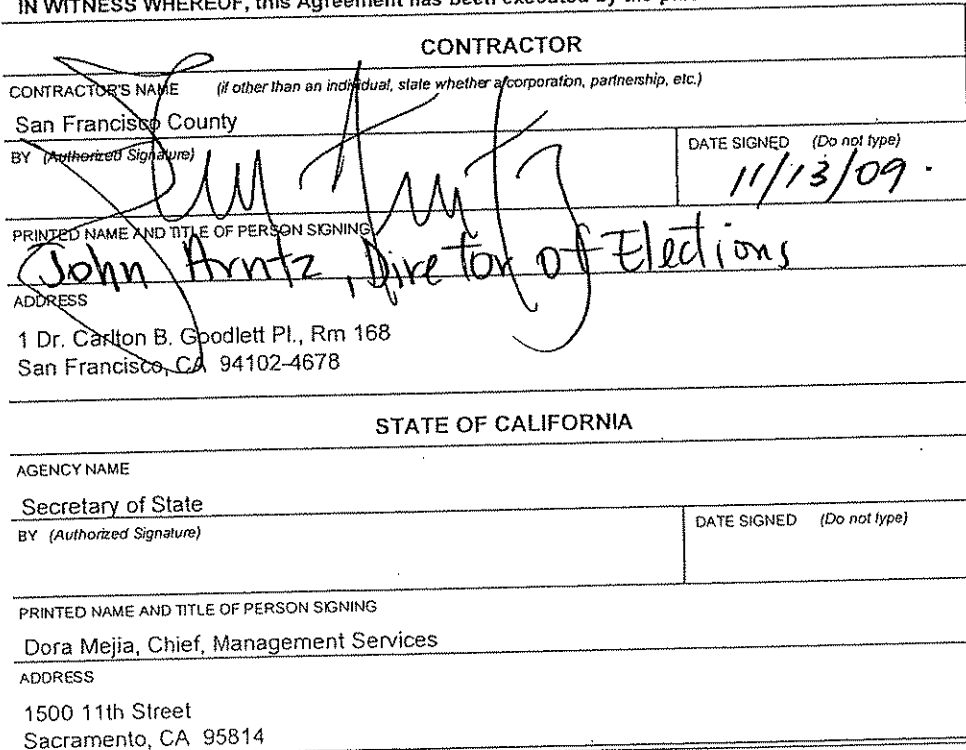 IN WITNESS WHEREOF, this Agreement has been executed by the
CONTRACTOR
CONTRACTOR'S NAME (if other than an individual, state whether a corporation, partnership, etc.)
San Francisco County
BY (Authorized Signature)
DATE SIGNED (Do not type)
11/13/09.
PRINTED NAME AND TITLE OF PERSON SIGNING
John Arntz, Director of Elections
ADDRESS
1 Dr. Carlton B. Goodlett Pl., Rm 168
San Francisco, CA 94102-4678
STATE OF CALIFORNIA
AGENCY NAME
Secretary of State
BY (Authorized Signature)
DATE SIGNED (Do not type)
PRINTED NAME AND TITLE OF PERSON SIGNING
Dora Mejia, Chief, Management Services
ADDRESS
1500 11th Street
Sacramento, CA 95814